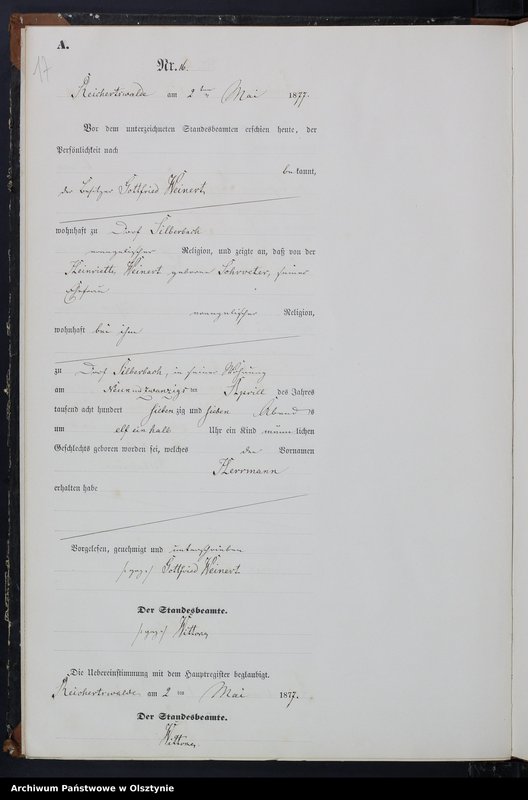 A.
17
Nr. 16.
Reichertswalde am 2ten Mai 1877.
Vor dem unterzeichneten Standesbeamten erschien heute, der
Persönlichkeit nach
bekannt,
der Besitzer Gottfried Weinert
wohnhaft zu Dorf Silberbach
evangelischer Religion, und zeigte an, daß von der
Henriette Weinert geborne Schroeter, seiner
Ehefrau
evangelischer Religion,
wohnhaft bei ihm
zu Dorf Silberbach, in seiner Wohnung
am Neunundzwanzigsten Aprill des Jahres
tausend acht hundert siebenzig und sieben Abends
um elf ein halb Uhr ein Kind männlichen
Geschlechts geboren worden sei, welches den Vornamen
Herrmann
erhalten habe
Vorgelesen, genehmigt und unterschrieben
gez. Gottfried Weinert
Der Standesbeamte.
gez.
Die Uebereinstimmung mit dem Hauptregister beglaubigt.
Reichertswalde am 2ten Mai 1877.
Der Standesbeamte.
Archiwum Państwowe w Olsztynie